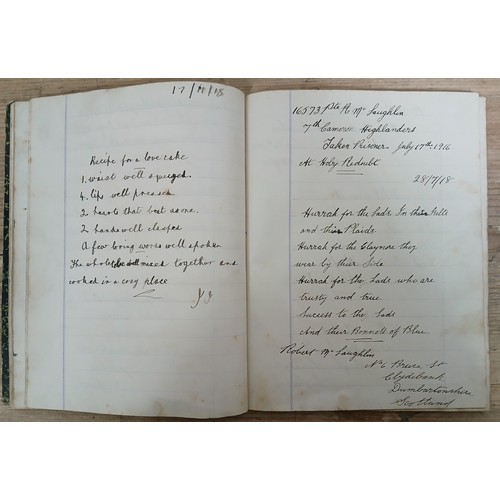 17/11/18
Recipe for a love cake
1. waist well squeezed.
4. lips well pressed
2 hearts that beat as one.
2 hands well clasped
A few loving words well spoken
The whole well mixed together and
cooked in a cosy place
J J
16573 Pte R. Mc Laughlin
7th Cameron Highlanders
Taken Prisoner July 17th 1916
At Hohy Redoubt
28/7/18
Hurrah for the Lads. In their Kilts
and their Plaids
Hurrah for the Claymore they
wear by their Side
Hurrah for the Lads who are
trusty and true
Success to the Lads
And their Bonnets of Blue
Robert Mc Laughlin
No 6 St
Clydebank
Dumbartonshire
Scotland